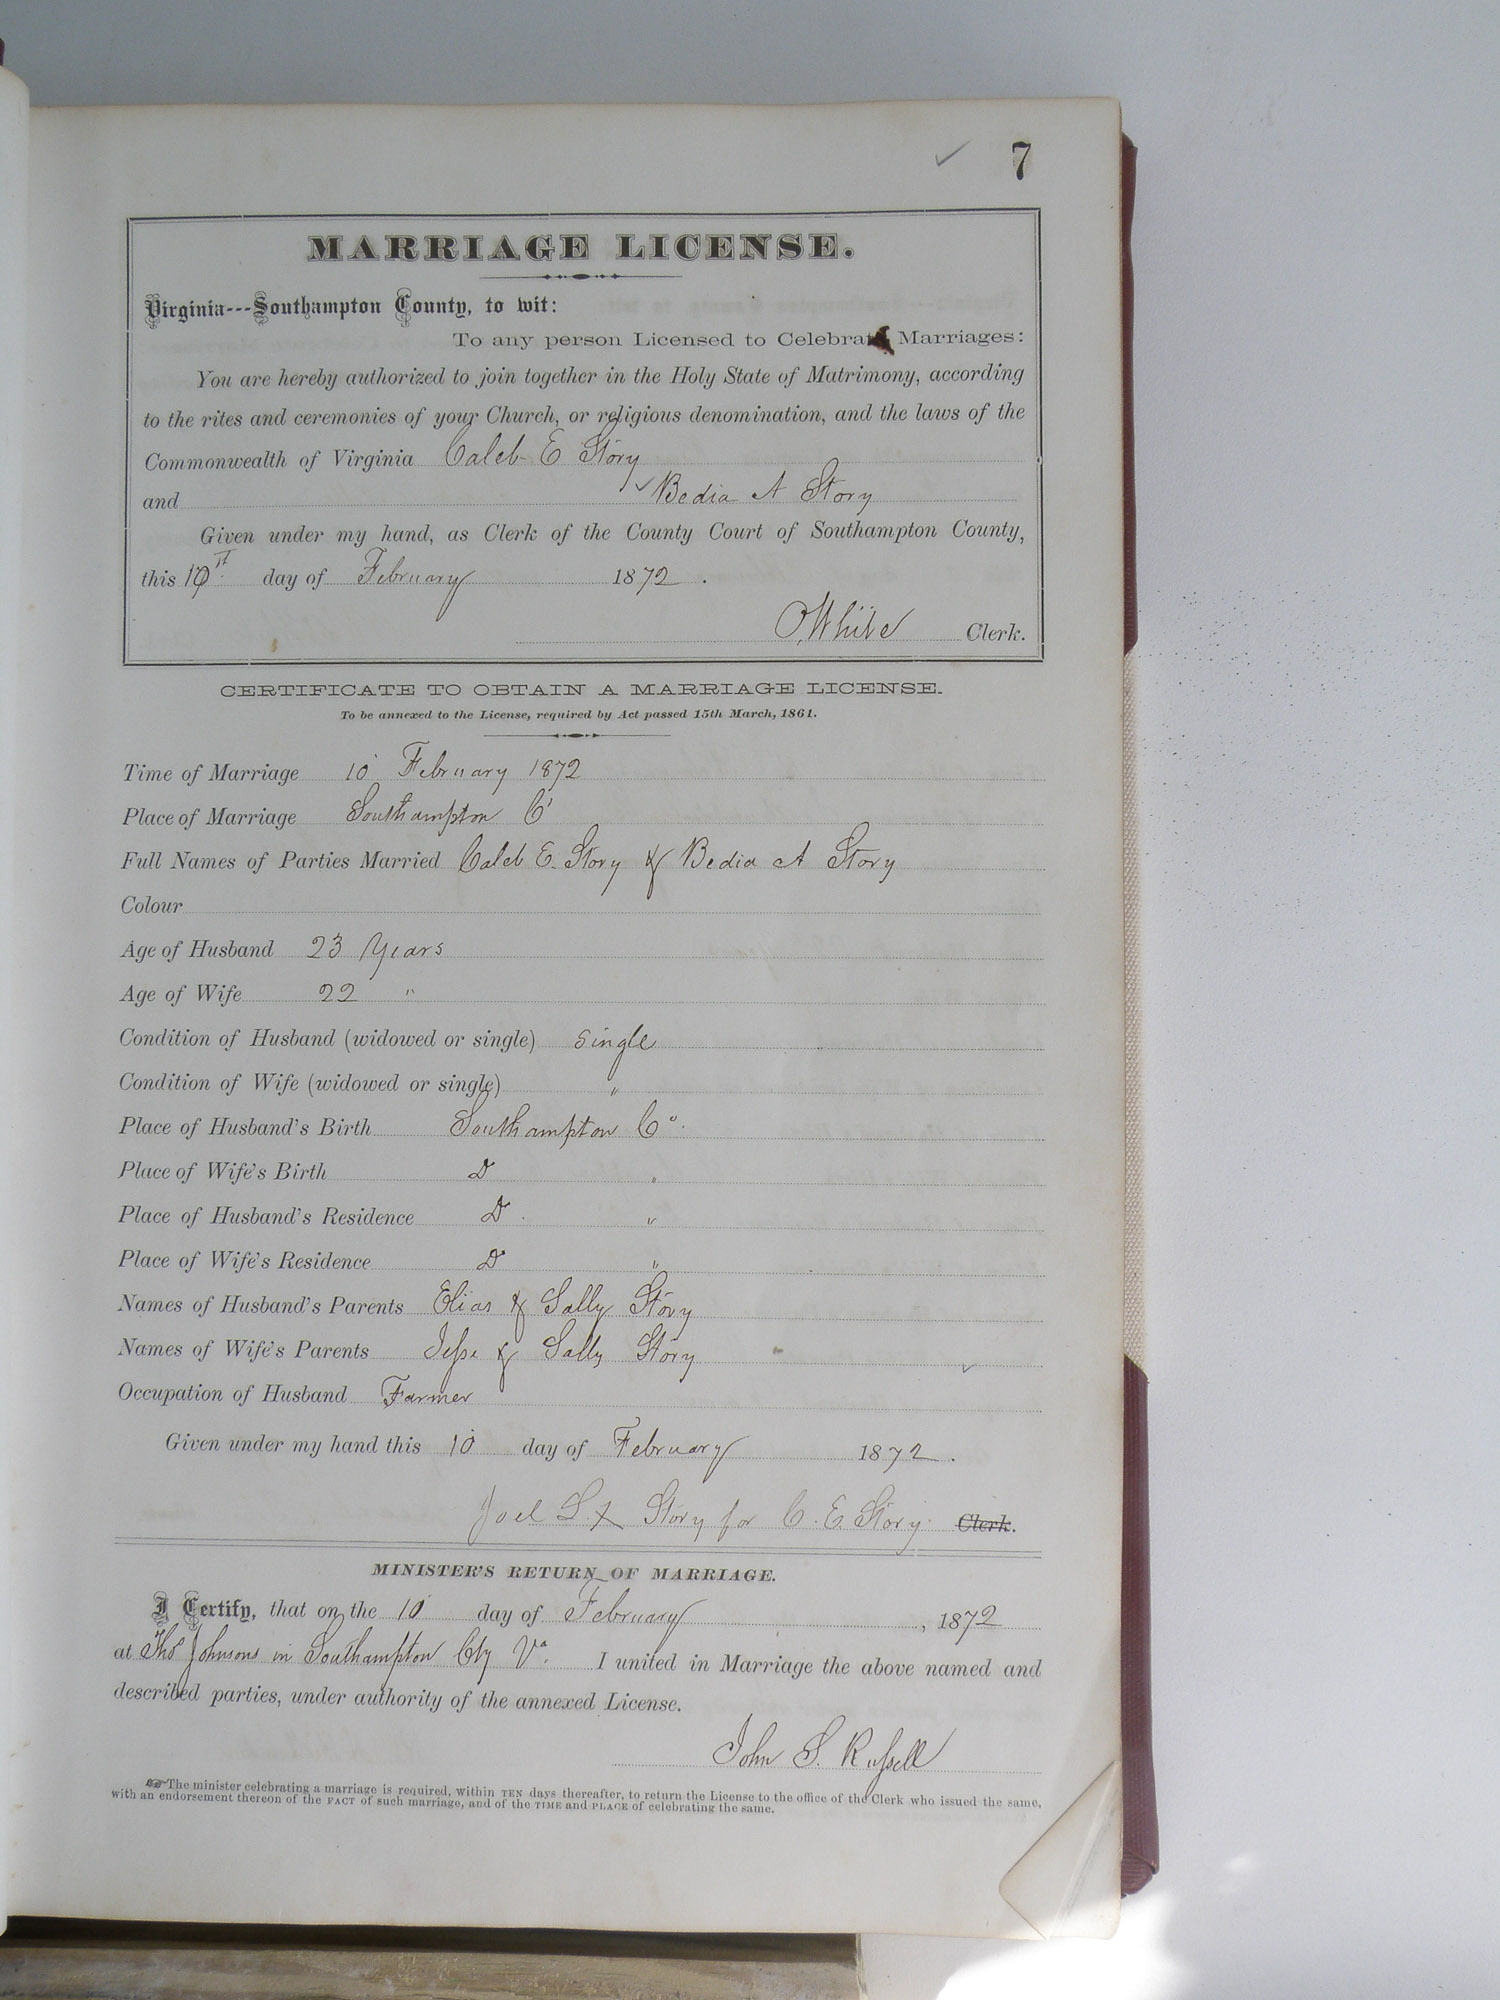 7
MARRIAGE LICENSE.
Virginia---Southampton County, to wit:
To any person Licensed to Celebrate Marriages:
You are hereby authorized to join together in the Holy State of Matrimony, according
to the rites and ceremonies of your Church, or religious denomination, and the laws of the
Commonwealth of Virginia Caleb E Story
and Bedia A Story
Given under my hand, as Clerk of the County Court of Southampton County,
this 10 day of February 1872.
White Clerk.
CERTIFICATE TO OBTAIN A MARRIAGE LICENSE.
To be annexed to the License, required by Act passed 15th March, 1861.
Time of Marriage 10 February 1872
Place of Marriage Southampton Co
Full Names of Parties Married Caleb E. Story & Bedia A Story
Colour
Age of Husband 23 Years
Age of Wife 22 "
Condition of Husband (widowed or single) single
Condition of Wife (widowed or single) "
Place of Husband's Birth Southampton Co.
Place of Wife's Birth Do "
Place of Husband's Residence Do "
Place of Wife's Residence Do "
Names of Husband's Parents Elias & Sally Story
Names of Wife's Parents Jesse & Sally Story
Occupation of Husband Farmer
Given under my hand this 10 day of February 1872.
Joel S. X Story for C. E. Story Clerk.
MINISTER'S RETURN OF MARRIAGE.
I Certify, that on the 10 day of February, 1872
at Thos Johnsons in Southampton Cty Va. I united in Marriage the above named and
described parties, under authority of the annexed License.
John S. Russell
The minister celebrating a marriage is required, within TEN days thereafter, to return the License to the office of the Clerk who issued the same,
with an endorsement thereon of the FACT of such marriage, and of the TIME and PLACE of celebrating the same.